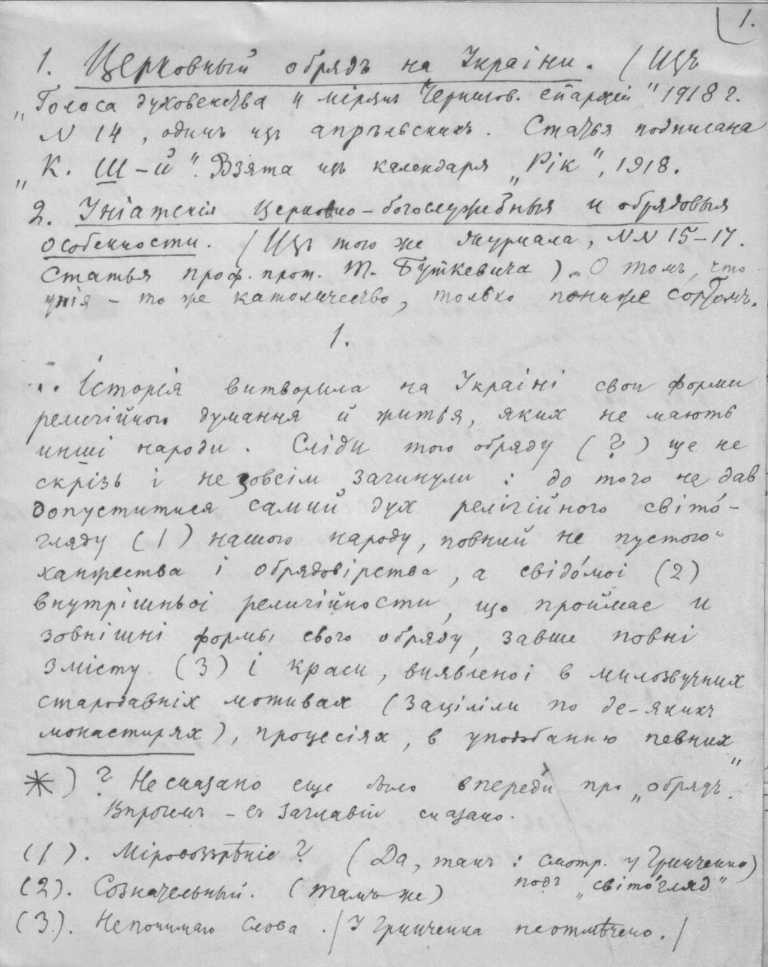 1.
1. Церковный обрядъ на України. (Изъ
„Голоса духовенства и мірянъ Чернигов. епархіи" 1918 г.
N 14, одинъ изъ апрѣльскихъ. Статья подписана
„К. Ш-й". Взята изъ календаря „Рік", 1918.
2. Уніатскія церковно-богослужебныя и обрядовыя
особенности. (Изъ того же журнала, NN 15-17.
Статья проф. прот. Т. Буткевича). О томъ, что
унія - то же католичество, только пониже сортомъ.
1.
.. Історія витворила на Україні свои форми
религійного думання й життья, яких не мають
инші народи. Сліди того обряду (?) ще не
скрізь і не зовсім загинули: до того не дав
допуститися самий дух религійного світо́-
гляду (1) нашого народу, повний не пустого
ханжества і обрядовірства, а свідо́моі (2)
внутрішньоі религійности, що проймає и
зовнішні формы свого обряду, завше повні
змісту (3) і краси, виявленоі в милозвучних
стародавніх мотивах (заціліли по де-яких
монастирях), процесіях, в уподобанню певних
*) ? Не сказано еще было впереди про „обрядъ".
Впрочемъ - въ заглавіи сказано.
(1). Міровоззрѣніе? (Да, такъ: смотр. у Гринченко)
подъ „світо́гляд"
(2). Сознательный. (тамъ же)
(3). Непонимаю слова. /У Гринченка неотмѣчено./